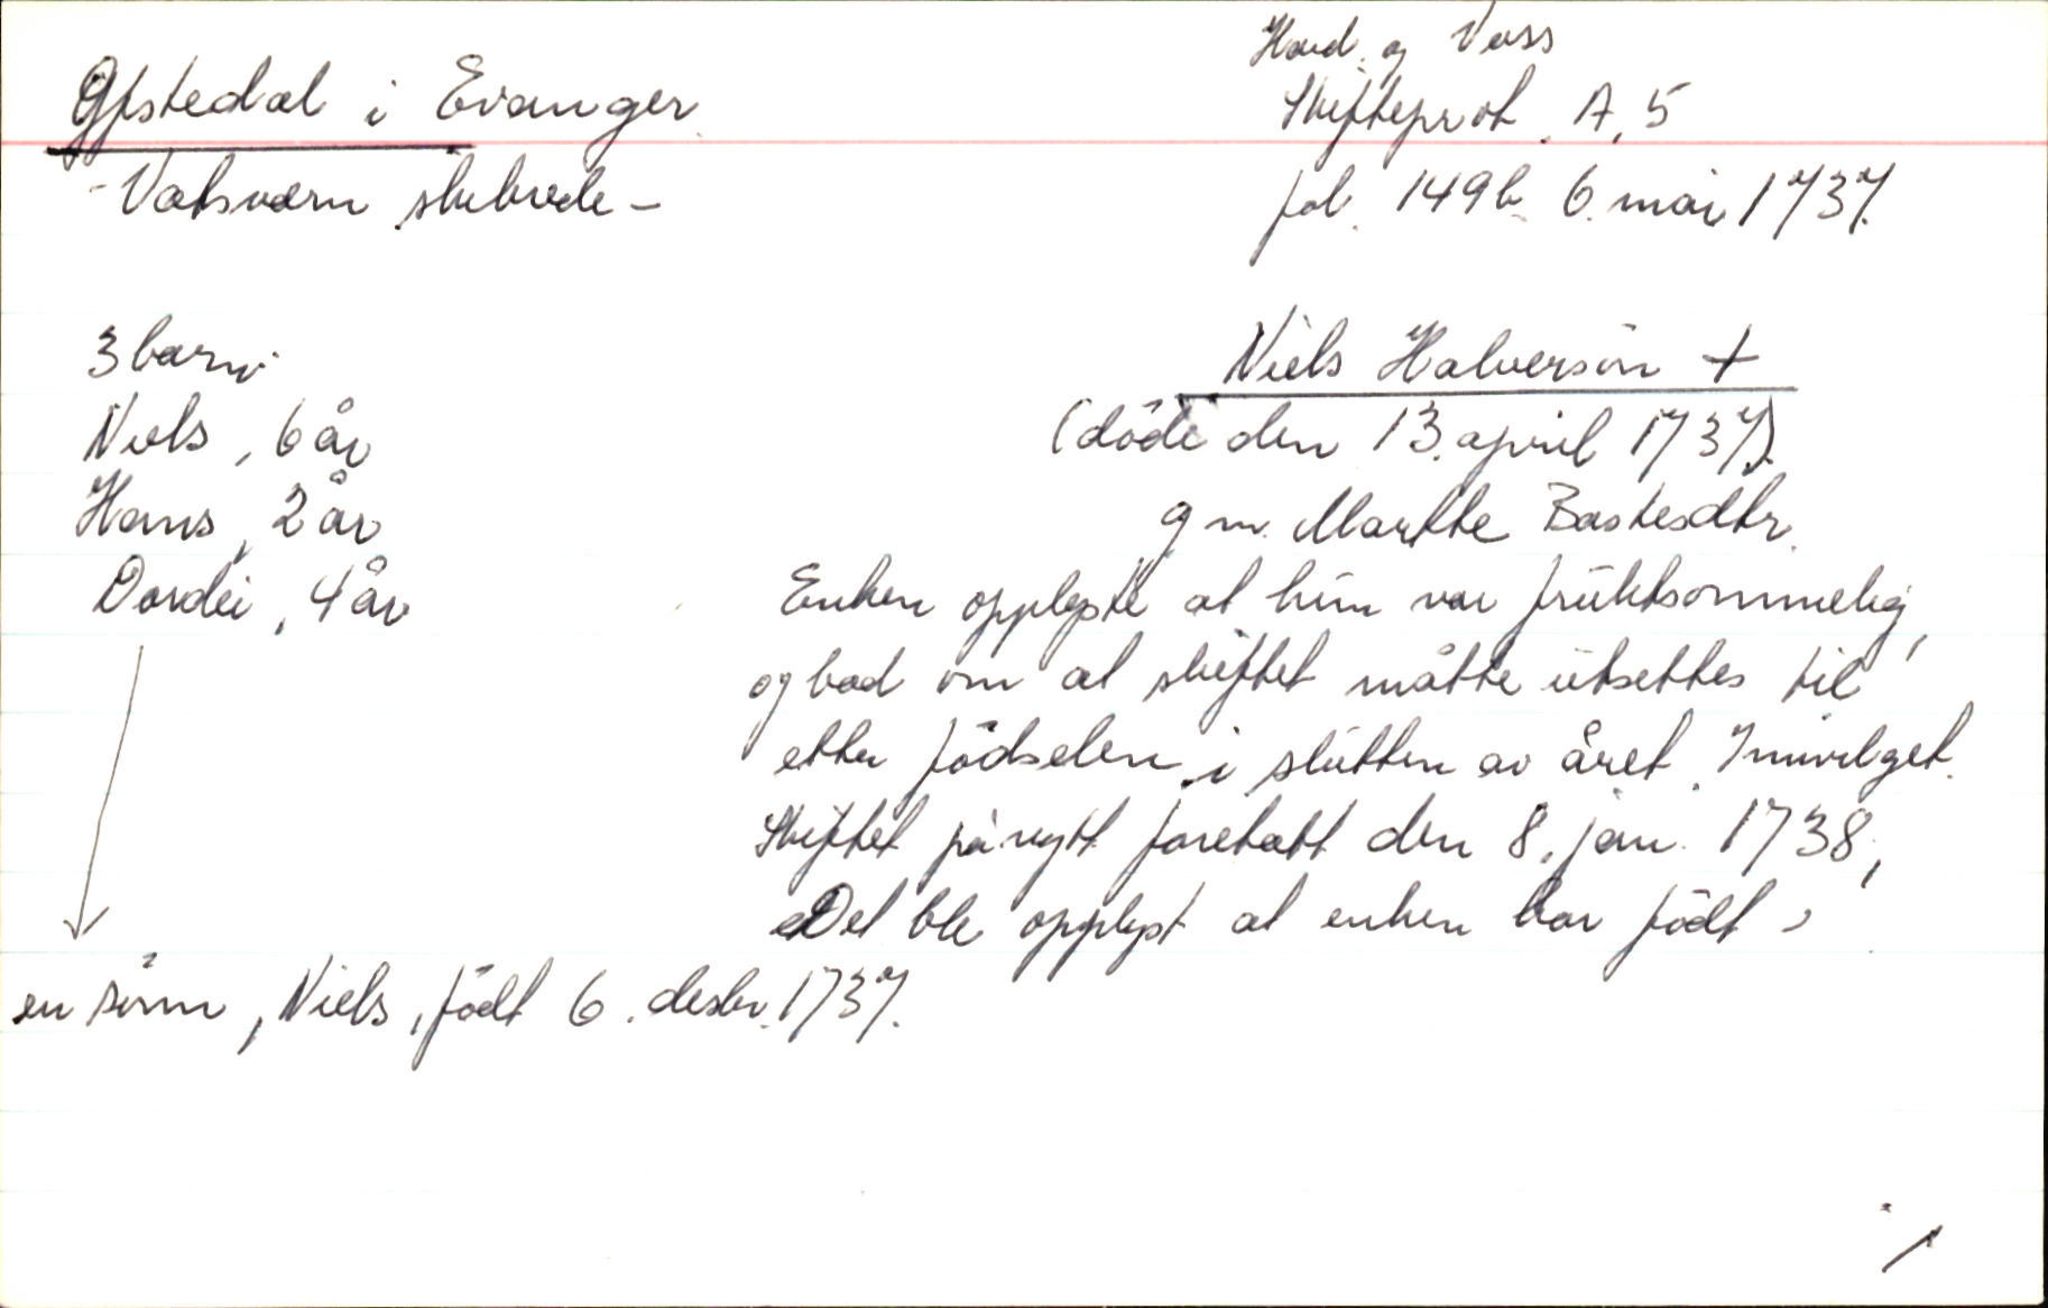 Gfstedal i Evanger
- Vatsværn skibrede -
Hard. og Voss
Skifteprot. A, 5
fol. 149b. 6. mai 1737.
3 barn:
Niels, 6 år
Hans, 2 år
Dordei, 4 år
Niels Halversön +
(döde den 13. april 1737).
g m. Marthe Bastesdtr.
Enken opplyste at hun var fruktsommelig,
og bad om at skiftet måtte utsettes til
etter födselen i slutten av året. Innvilget.
Skiftet på nytt foretatt den 8. jan. 1738,
Det ble opplyst at enken har födt
en sönn, Niels, födt 6. desbr. 1737.